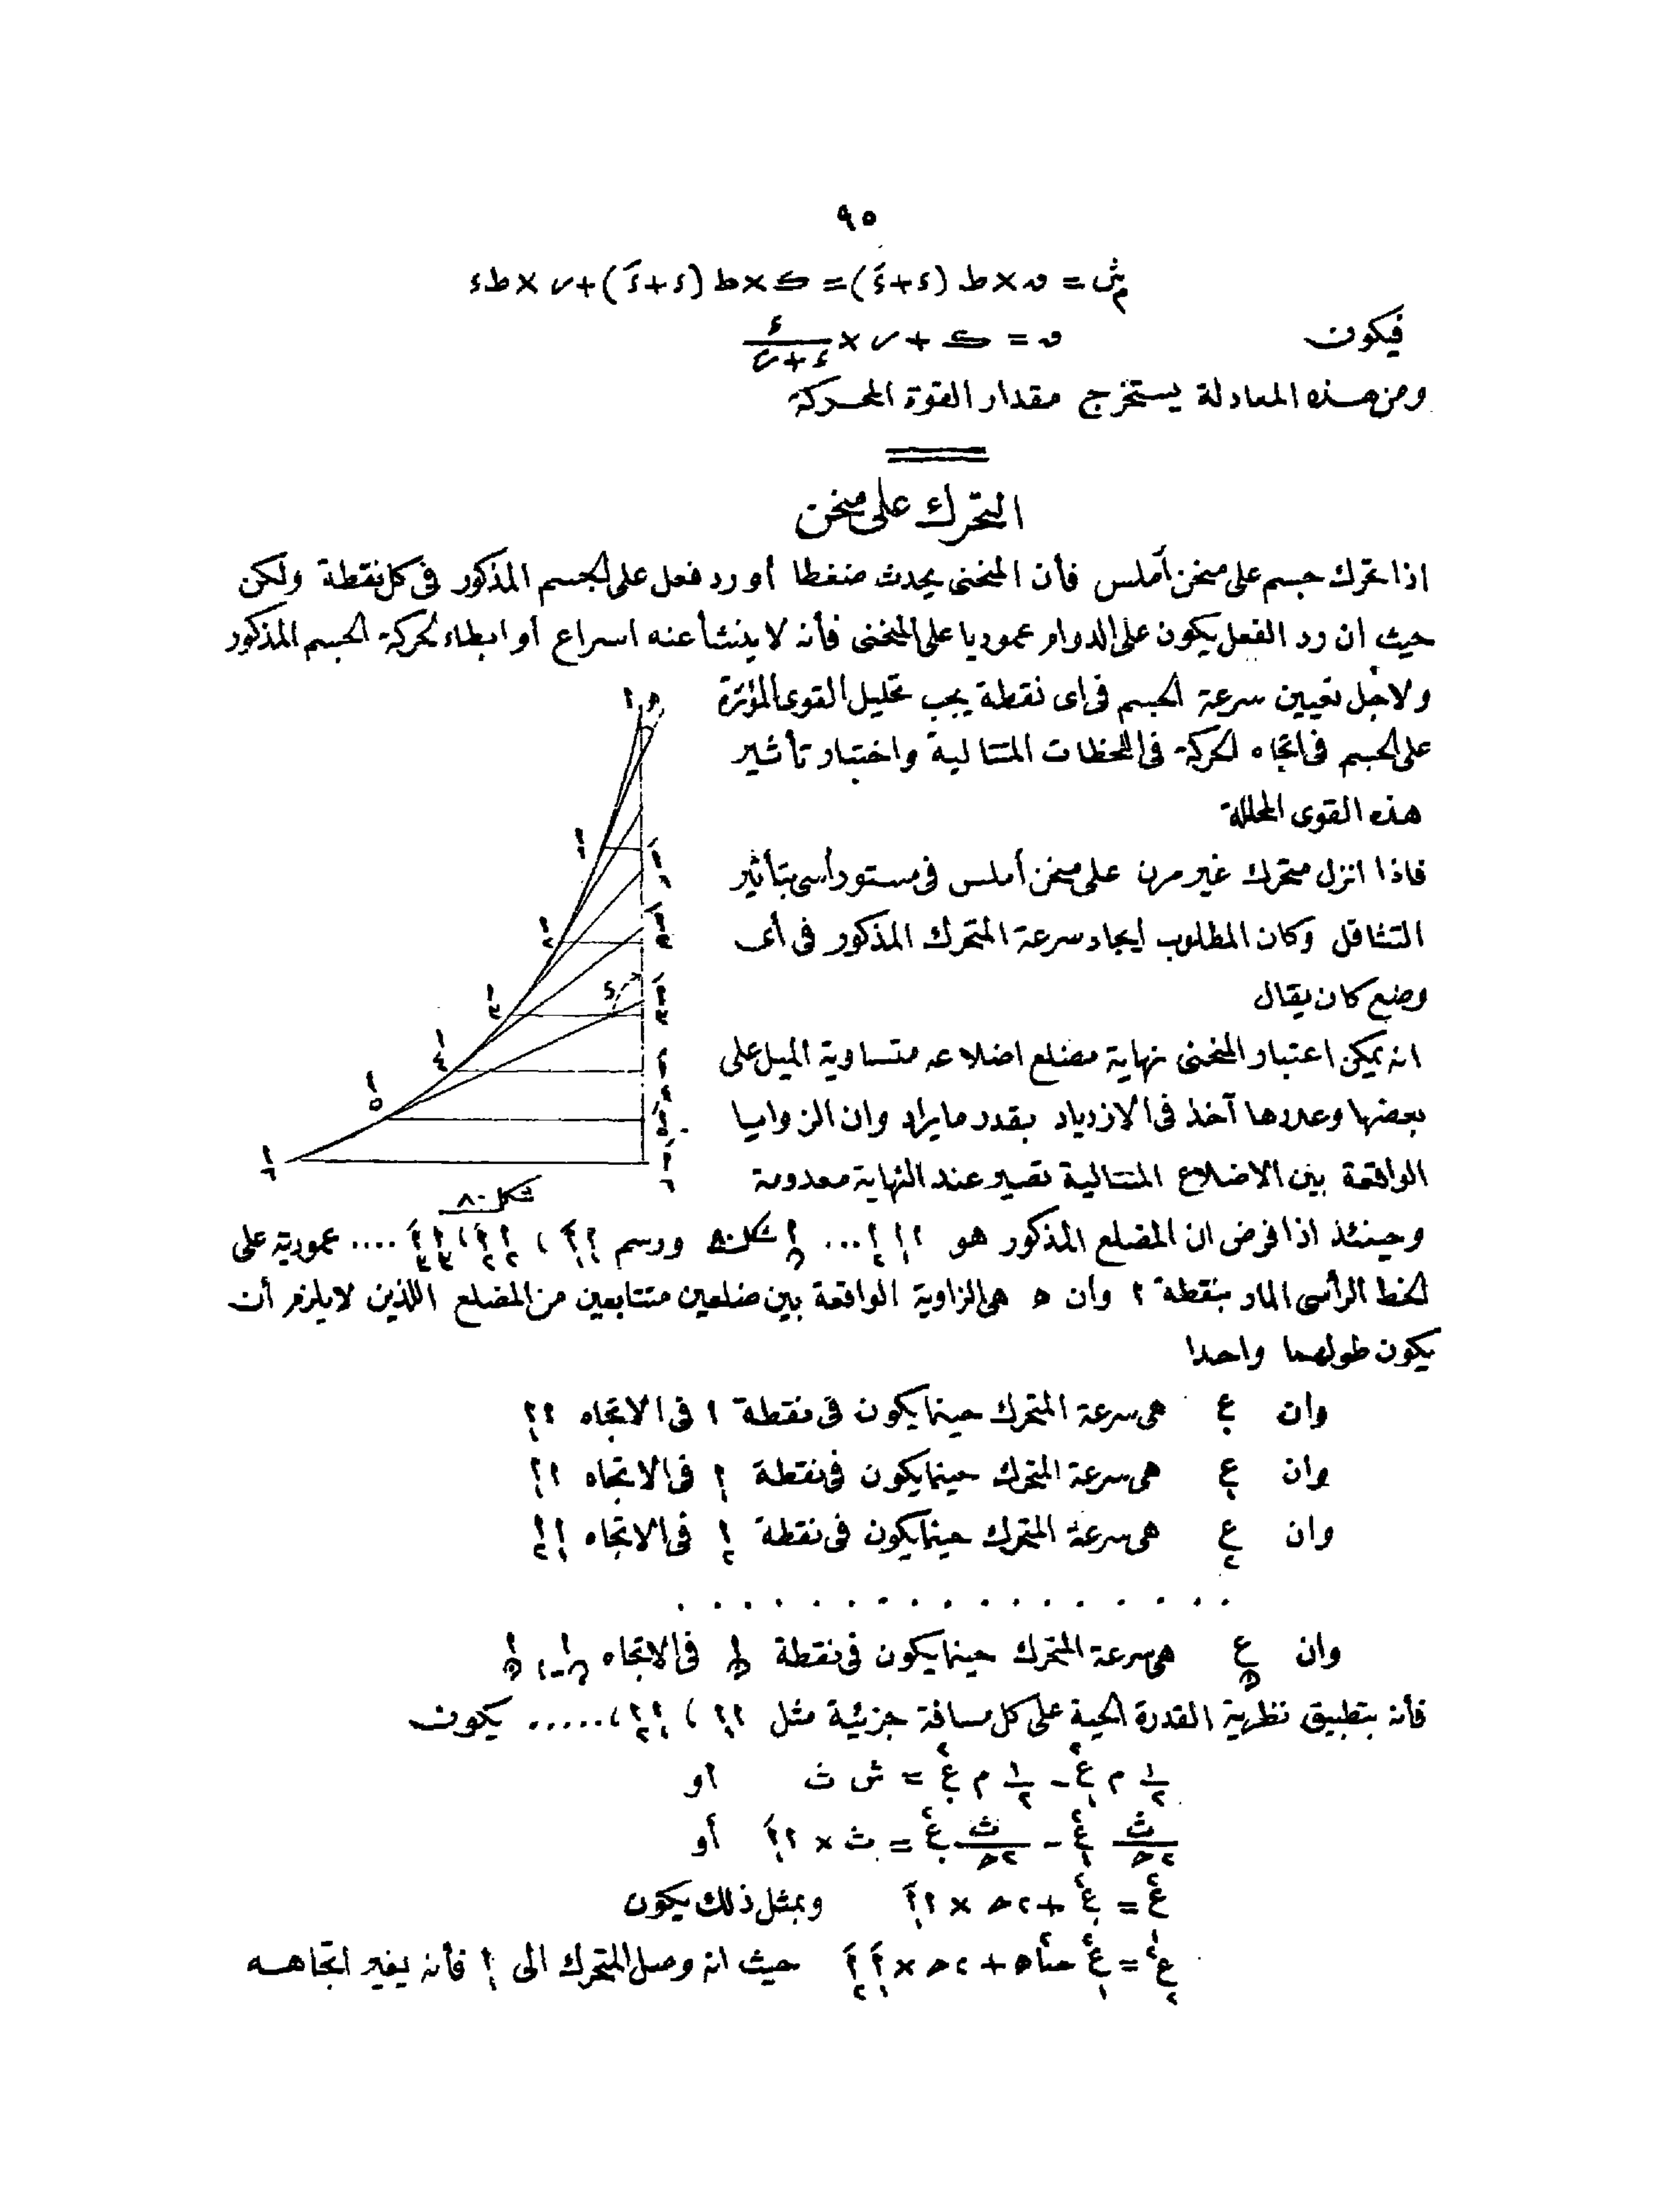 ٩٥
شم = ق × ط (ء + ءَ) = ك × ط (ء + ءَ) + ر × ط ء
فيكون ق = ك + ر × ء / (ء + ءَ)
ومن هذه المعادلة يستخرج مقدار القوة المحركة
التحرك على منحن
اذا تحرك جسم على منحن أملس فأن المنحنى يحدث ضغطا أو رد فعل على الجسم المذكور فى كل نقطة ولكن
حيث ان رد الفعل يكون على الدوام عموديا على المنحنى فأنه لا ينشأ عنه اسراع أو ابطاء لحركة الجسم المذكور
ولاجل تعيين سرعة الجسم فى اى نقطة يجب تحليل القوى المؤثرة
على الجسم فى اتجاه الحركة فى اللحظات المتتالية واختبار تأثير
هذه القوى المحللة
فاذا انزل متحرك غير مرن على منحن أملس فى مستو رأسى بتأثير
التثاقل وكان المطلوب ايجاد سرعة المتحرك المذكور فى أى
وضع كان يقال
انه يمكن اعتبار المنحنى نهاية مضلع اضلاعه متساوية الميل على
بعضها وعددها آخذ فى الازدياد بقدر ما يراد وان الزوايا
الواقعة بين الاضلاع المتتالية تصير عند النهاية معدومة
شكل ٨٠
وحينئذ اذا فرض ان المضلع المذكور هو ا ا₁ ا₂ ... اں شكل ٨٠ ورسم ا₁ اَ₁ ، ا₂ اَ₂ ، ا₃ اَ₃ .... عمودية على
الخط الرأسى المار بنقطة ا وان ه هى الزاوية الواقعة بين ضلعين متتابعين من المضلع اللذين لا يلزم أن
يكون طولهما واحدا
وان ع. هى سرعة المتحرك حينما يكون فى نقطة ا فى الاتجاه ا ا₁
وان ع₁ هى سرعة المتحرك حينما يكون فى نقطة ا₁ فى الاتجاه ا ا₁
وان ع₂ هى سرعة المتحرك حينما يكون فى نقطة ا₂ فى الاتجاه ا₁ ا₂
. . . . . . . . . . . . . . . . .
وان عں هى سرعة المتحرك حينما يكون فى نقطة اں فى الاتجاه اں₋₁ اں
فأنه بتطبيق نظرية القدرة الحية على كل مسافة جزئية مثل ا ا₁ ، ا₁ ا₂ ، ..... يكون
١/٢ م ع₁² − ١/٢ م ع.² = ش ث او
ث/٢ح ع₁² − ث/٢ح ع.² = ث × ا اَ₁ أو
ع₁² = ع.² + ٢ح × ا اَ₁ وبمثل ذلك يكون
ع₂² = ع₁² حتا²ه + ٢ح × اَ₁ اَ₂ حيث انه وصل المتحرك الى ا₁ فأنه يغير اتجاهه